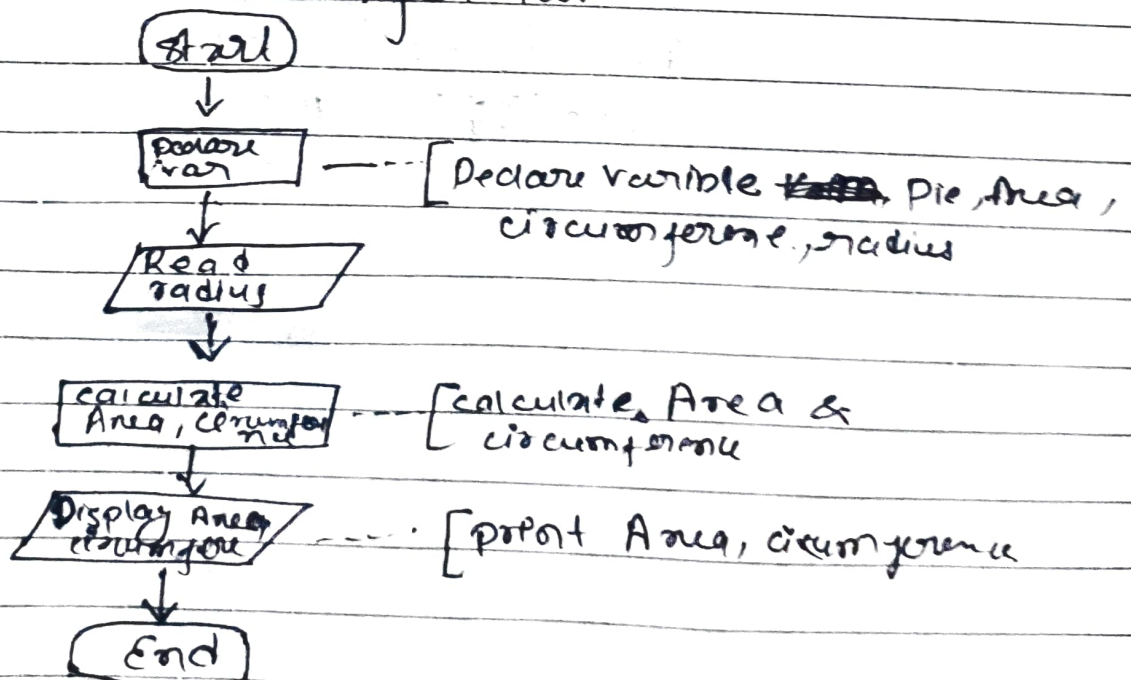 Start
Declare
var
Declare varible Pie, Area,
circumferene, radius
Read
radius
calculate
Area, cirumfer
nce
calculate Area &
circumference
Display Area
circumfere
print Area, circumference
End